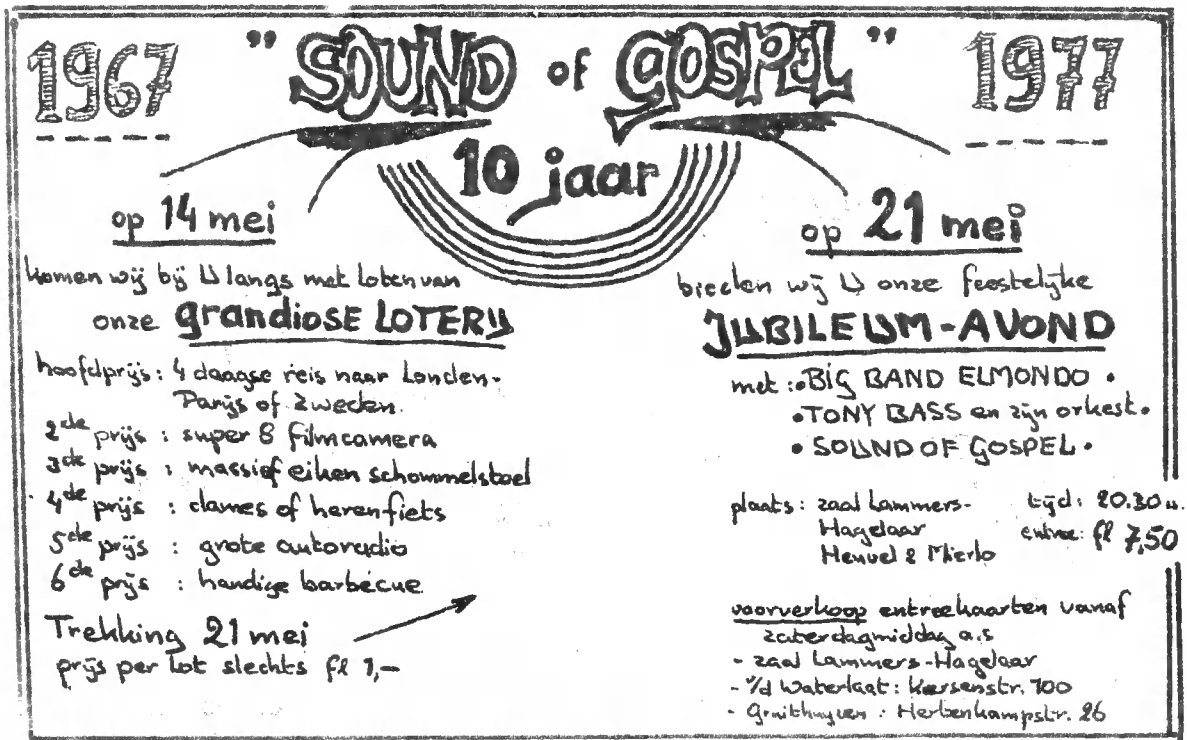 1967 "SOUND of GOSPEL" 1977
10 jaar
op 14 mei
komen wij bij U langs met loten van
onze grandiose LOTERIJ
hoofdprijs: 4 daagse reis naar Londen-
Parijs of Zweden.
2de prijs : super 8 filmcamera
3de prijs : massief eiken schommelstoel
4de prijs : dames of herenfiets
5de prijs : grote autoradio
6de prijs : handige barbecue
Trekking 21 mei
prijs per lot slechts fl 1,-
op 21 mei
bieden wij U onze feestelijke
JUBILEUM-AVOND
met : • BIG BAND ELMONDO •
• TONY BASS en zijn orkest •
• SOUND OF GOSPEL •
plaats : zaal Lammers-
Hagelaar
Heuvel 2 Mierlo
tijd : 20.30 u.
entree: fl 7,50
voorverkoop entreekaarten vanaf
zaterdagmiddag a.s
- zaal Lammers-Hagelaar
- v/d Waterlaat : Kersenstr. 100
- : Herbenkampstr. 26